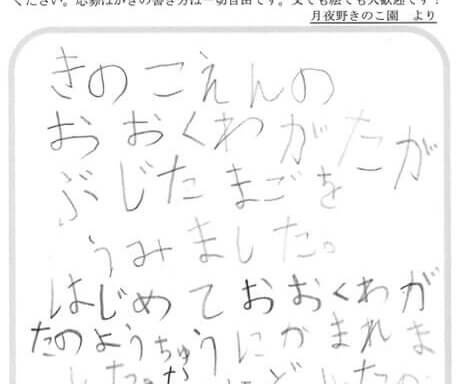 ください。応募はがきの書き方は一切自由です。文でも絵でも大歓迎です！
月夜野きのこ園　より
きのこえんの
おおくわがたが
ぶじたまごを
うみました。
はじめておおくわが
たのようちゅうにかまれま
した。